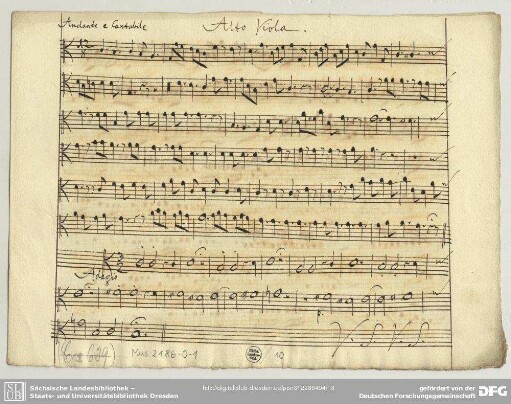 Andante e Cantabile
Alto Viola.
Adagio
V. S. V. S.
Mus 2186-O-1
10
Sächsische Landesbibliothek –
Staats- und Universitätsbibliothek Dresden
gefördert von der
Deutschen Forschungsgemeinschaft
DFG